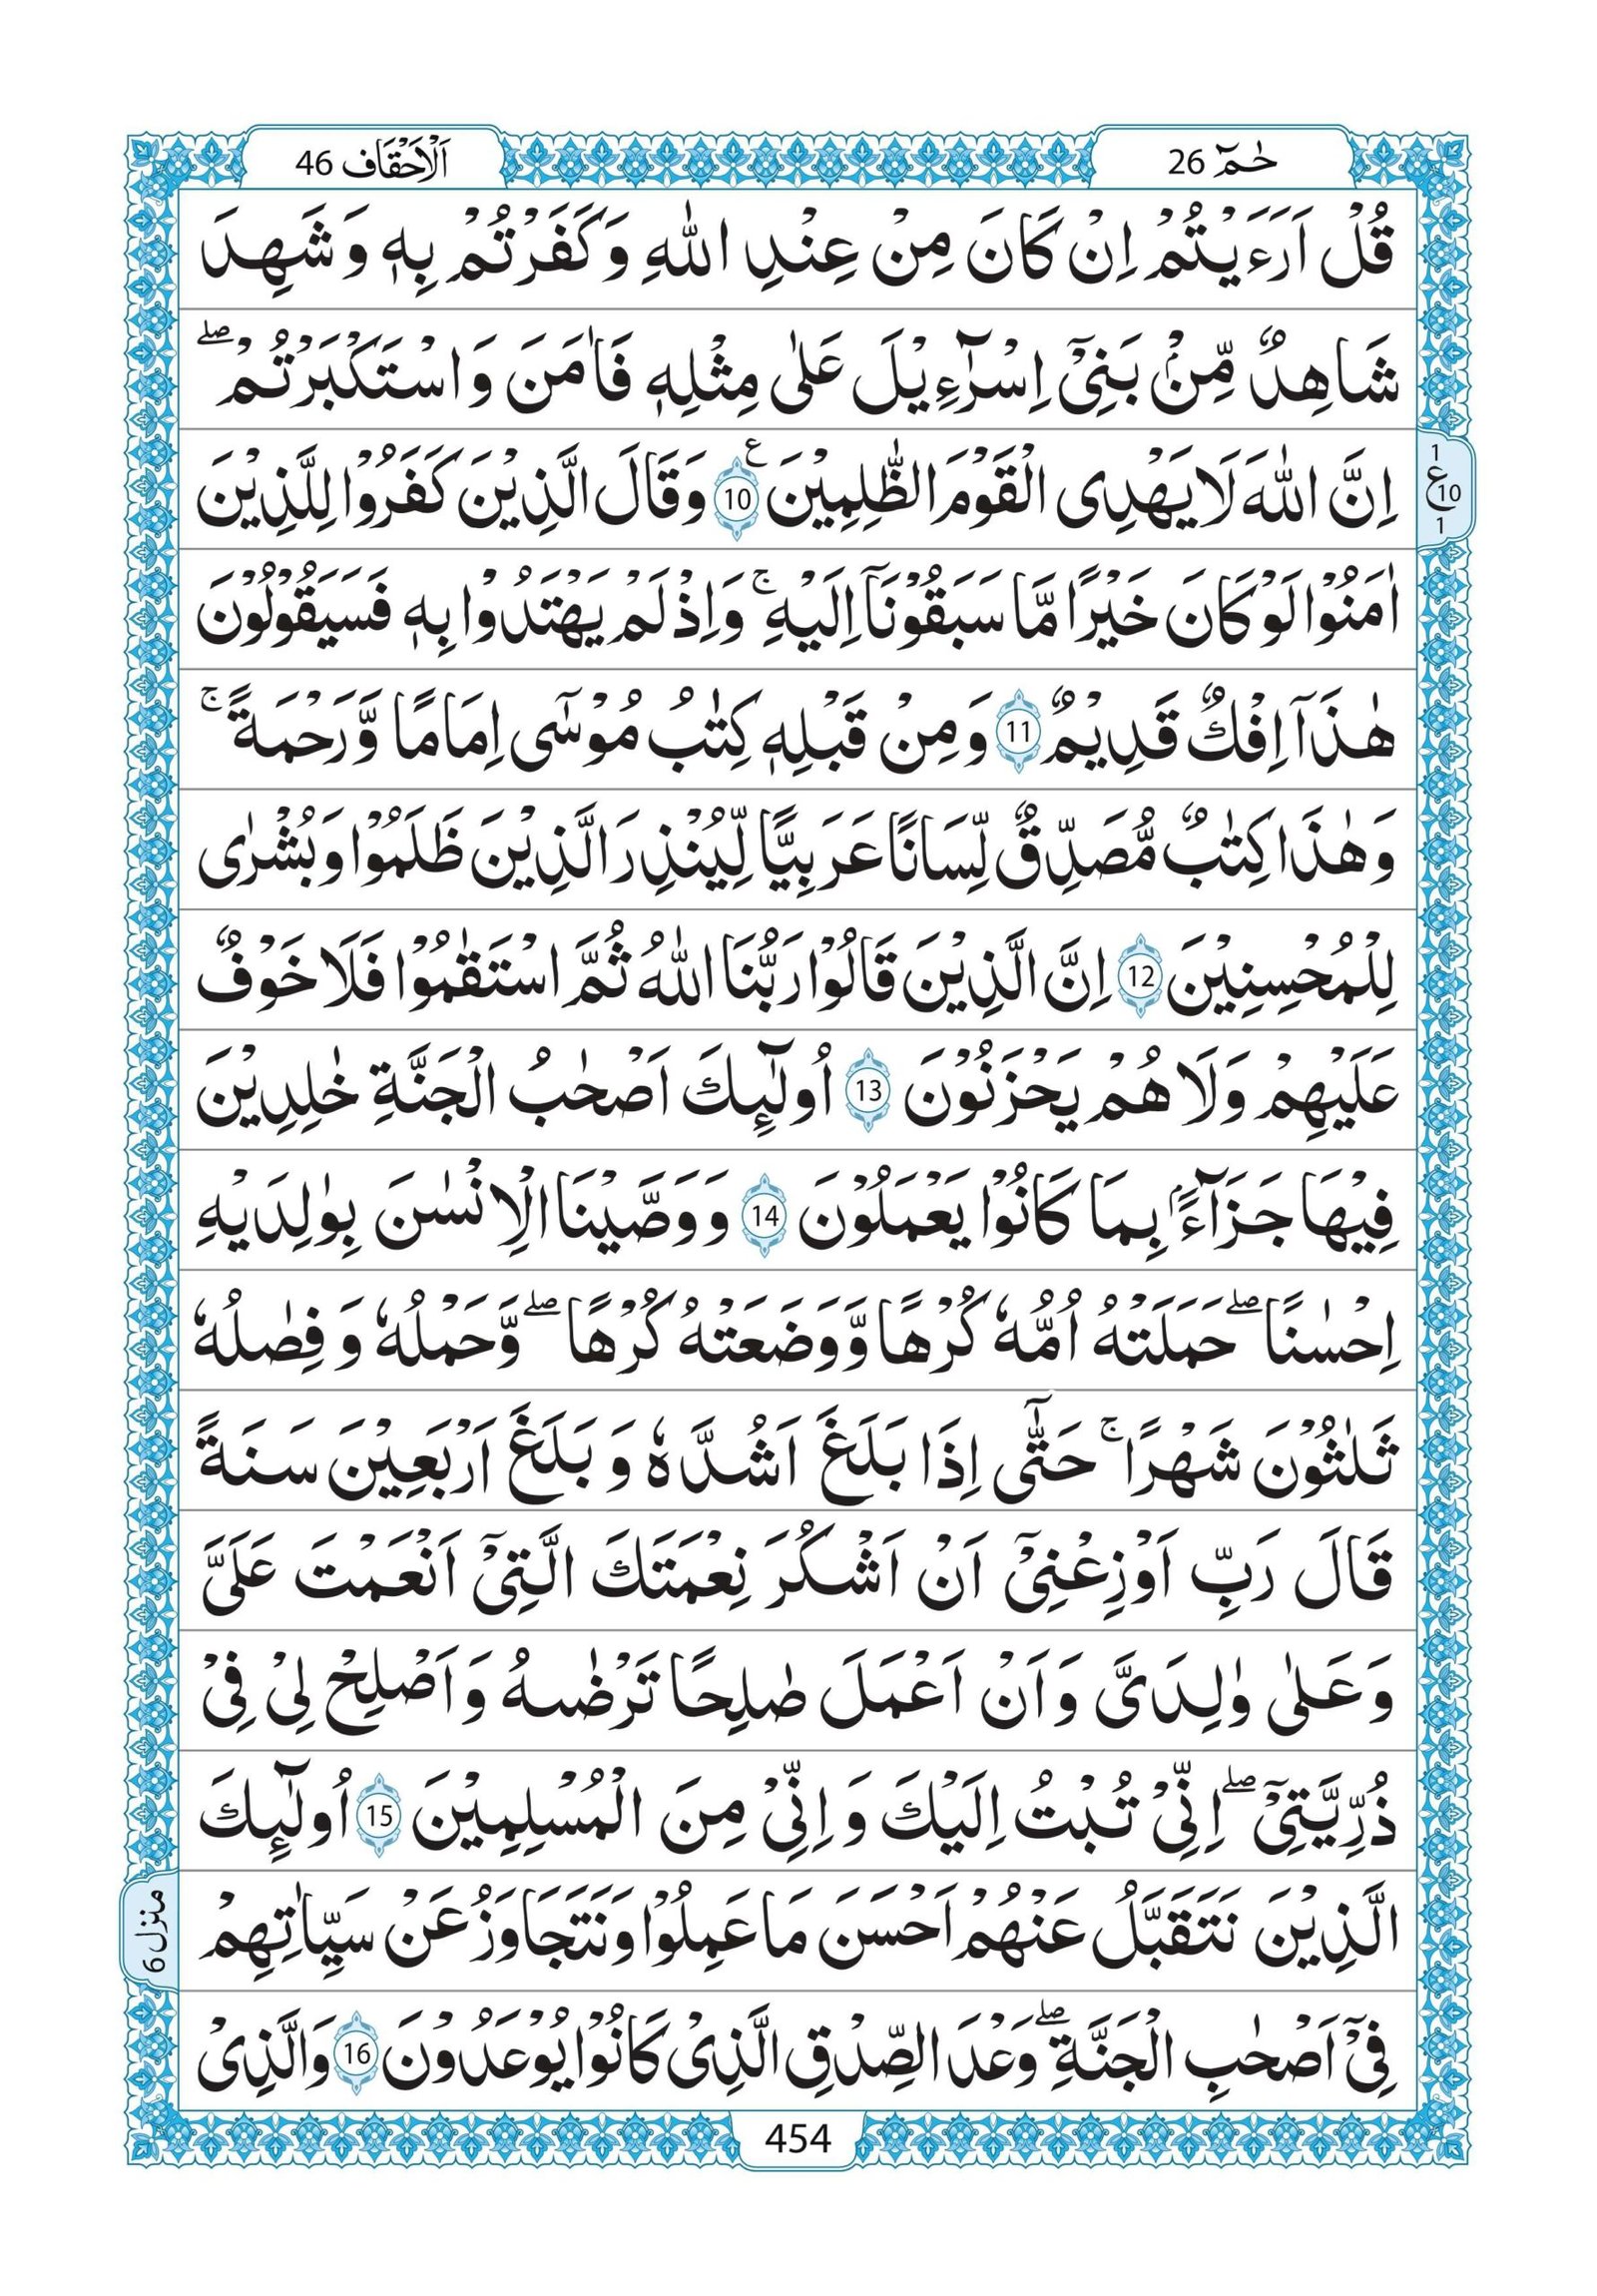 حٰمٓ 26
اَلْاَحْقَاف 46
قُلْ اَرَءَيْتُمْ اِنْ كَانَ مِنْ عِنْدِ اللّٰهِ وَكَفَرْتُمْ بِهٖ وَشَهِدَ
شَاهِدٌ مِّنْۢ بَنِىْٓ اِسْرَآءِيْلَ عَلٰى مِثْلِهٖ فَاٰمَنَ وَاسْتَكْبَرْتُمْ ۖ
اِنَّ اللّٰهَ لَا يَهْدِى الْقَوْمَ الظّٰلِمِيْنَ ع 10 وَقَالَ الَّذِيْنَ كَفَرُوْا لِلَّذِيْنَ
1 ع 10 1
اٰمَنُوْا لَوْ كَانَ خَيْرًا مَّا سَبَقُوْنَآ اِلَيْهِ ۚ وَاِذْ لَمْ يَهْتَدُوْا بِهٖ فَسَيَقُوْلُوْنَ
هٰذَآ اِفْكٌ قَدِيْمٌ 11 وَمِنْ قَبْلِهٖ كِتٰبُ مُوْسٰٓى اِمَامًا وَّرَحْمَةً ۚ
وَهٰذَا كِتٰبٌ مُّصَدِّقٌ لِّسَانًا عَرَبِيًّا لِّيُنْذِرَ الَّذِيْنَ ظَلَمُوْا وَبُشْرٰى
لِلْمُحْسِنِيْنَ 12 اِنَّ الَّذِيْنَ قَالُوْا رَبُّنَا اللّٰهُ ثُمَّ اسْتَقٰمُوْا فَلَا خَوْفٌ
عَلَيْهِمْ وَلَا هُمْ يَحْزَنُوْنَ 13 اُولٰٓئِكَ اَصْحٰبُ الْجَنَّةِ خٰلِدِيْنَ
فِيْهَا جَزَآءًۢ بِمَا كَانُوْا يَعْمَلُوْنَ 14 وَوَصَّيْنَا الْاِنْسٰنَ بِوٰلِدَيْهِ
اِحْسٰنًا ۖ حَمَلَتْهُ اُمُّهٗ كُرْهًا وَّوَضَعَتْهُ كُرْهًا ۖ وَّحَمْلُهٗ وَفِصٰلُهٗ
ثَلٰثُوْنَ شَهْرًا ۚ حَتّٰٓى اِذَا بَلَغَ اَشُدَّهٗ وَبَلَغَ اَرْبَعِيْنَ سَنَةً
قَالَ رَبِّ اَوْزِعْنِىْٓ اَنْ اَشْكُرَ نِعْمَتَكَ الَّتِىْٓ اَنْعَمْتَ عَلَىَّ
وَعَلٰى وٰلِدَىَّ وَاَنْ اَعْمَلَ صٰلِحًا تَرْضٰىهُ وَاَصْلِحْ لِىْ فِىْ
ذُرِّيَّتِىْٓ ۖ اِنِّىْ تُبْتُ اِلَيْكَ وَاِنِّىْ مِنَ الْمُسْلِمِيْنَ 15 اُولٰٓئِكَ
الَّذِيْنَ نَتَقَبَّلُ عَنْهُمْ اَحْسَنَ مَا عَمِلُوْا وَنَتَجَاوَزُ عَنْ سَيِّاٰتِهِمْ
منزل 6
فِىْٓ اَصْحٰبِ الْجَنَّةِ ۖ وَعْدَ الصِّدْقِ الَّذِىْ كَانُوْا يُوْعَدُوْنَ 16 وَالَّذِىْ
454